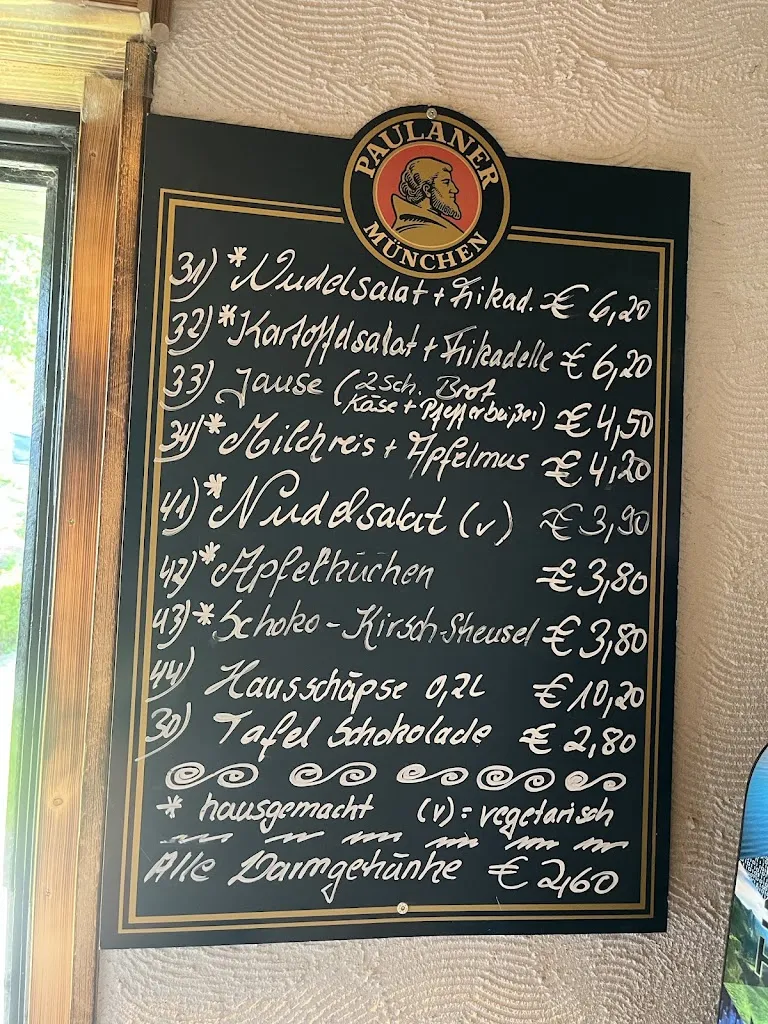 PAULANER
MÜNCHEN
31) *Nudelsalat + Frikad. € 6,20
32) *Kartoffelsalat + Frikadelle € 6,20
33) Jause (2 Sch. Brot
Käse + Pfefferbeißer) € 4,50
34) *Milchreis + Apfelmus € 4,20
41) *Nudelsalat (v) € 3,90
42) *Apfelkuchen € 3,80
43) *Schoko-Kirsch-Streusel € 3,80
44) Hausschäpse 0,2L € 10,20
30) Tafel Schokolade € 2,80
* hausgemacht (v) = vegetarisch
Alle Warmgetränke € 2,60